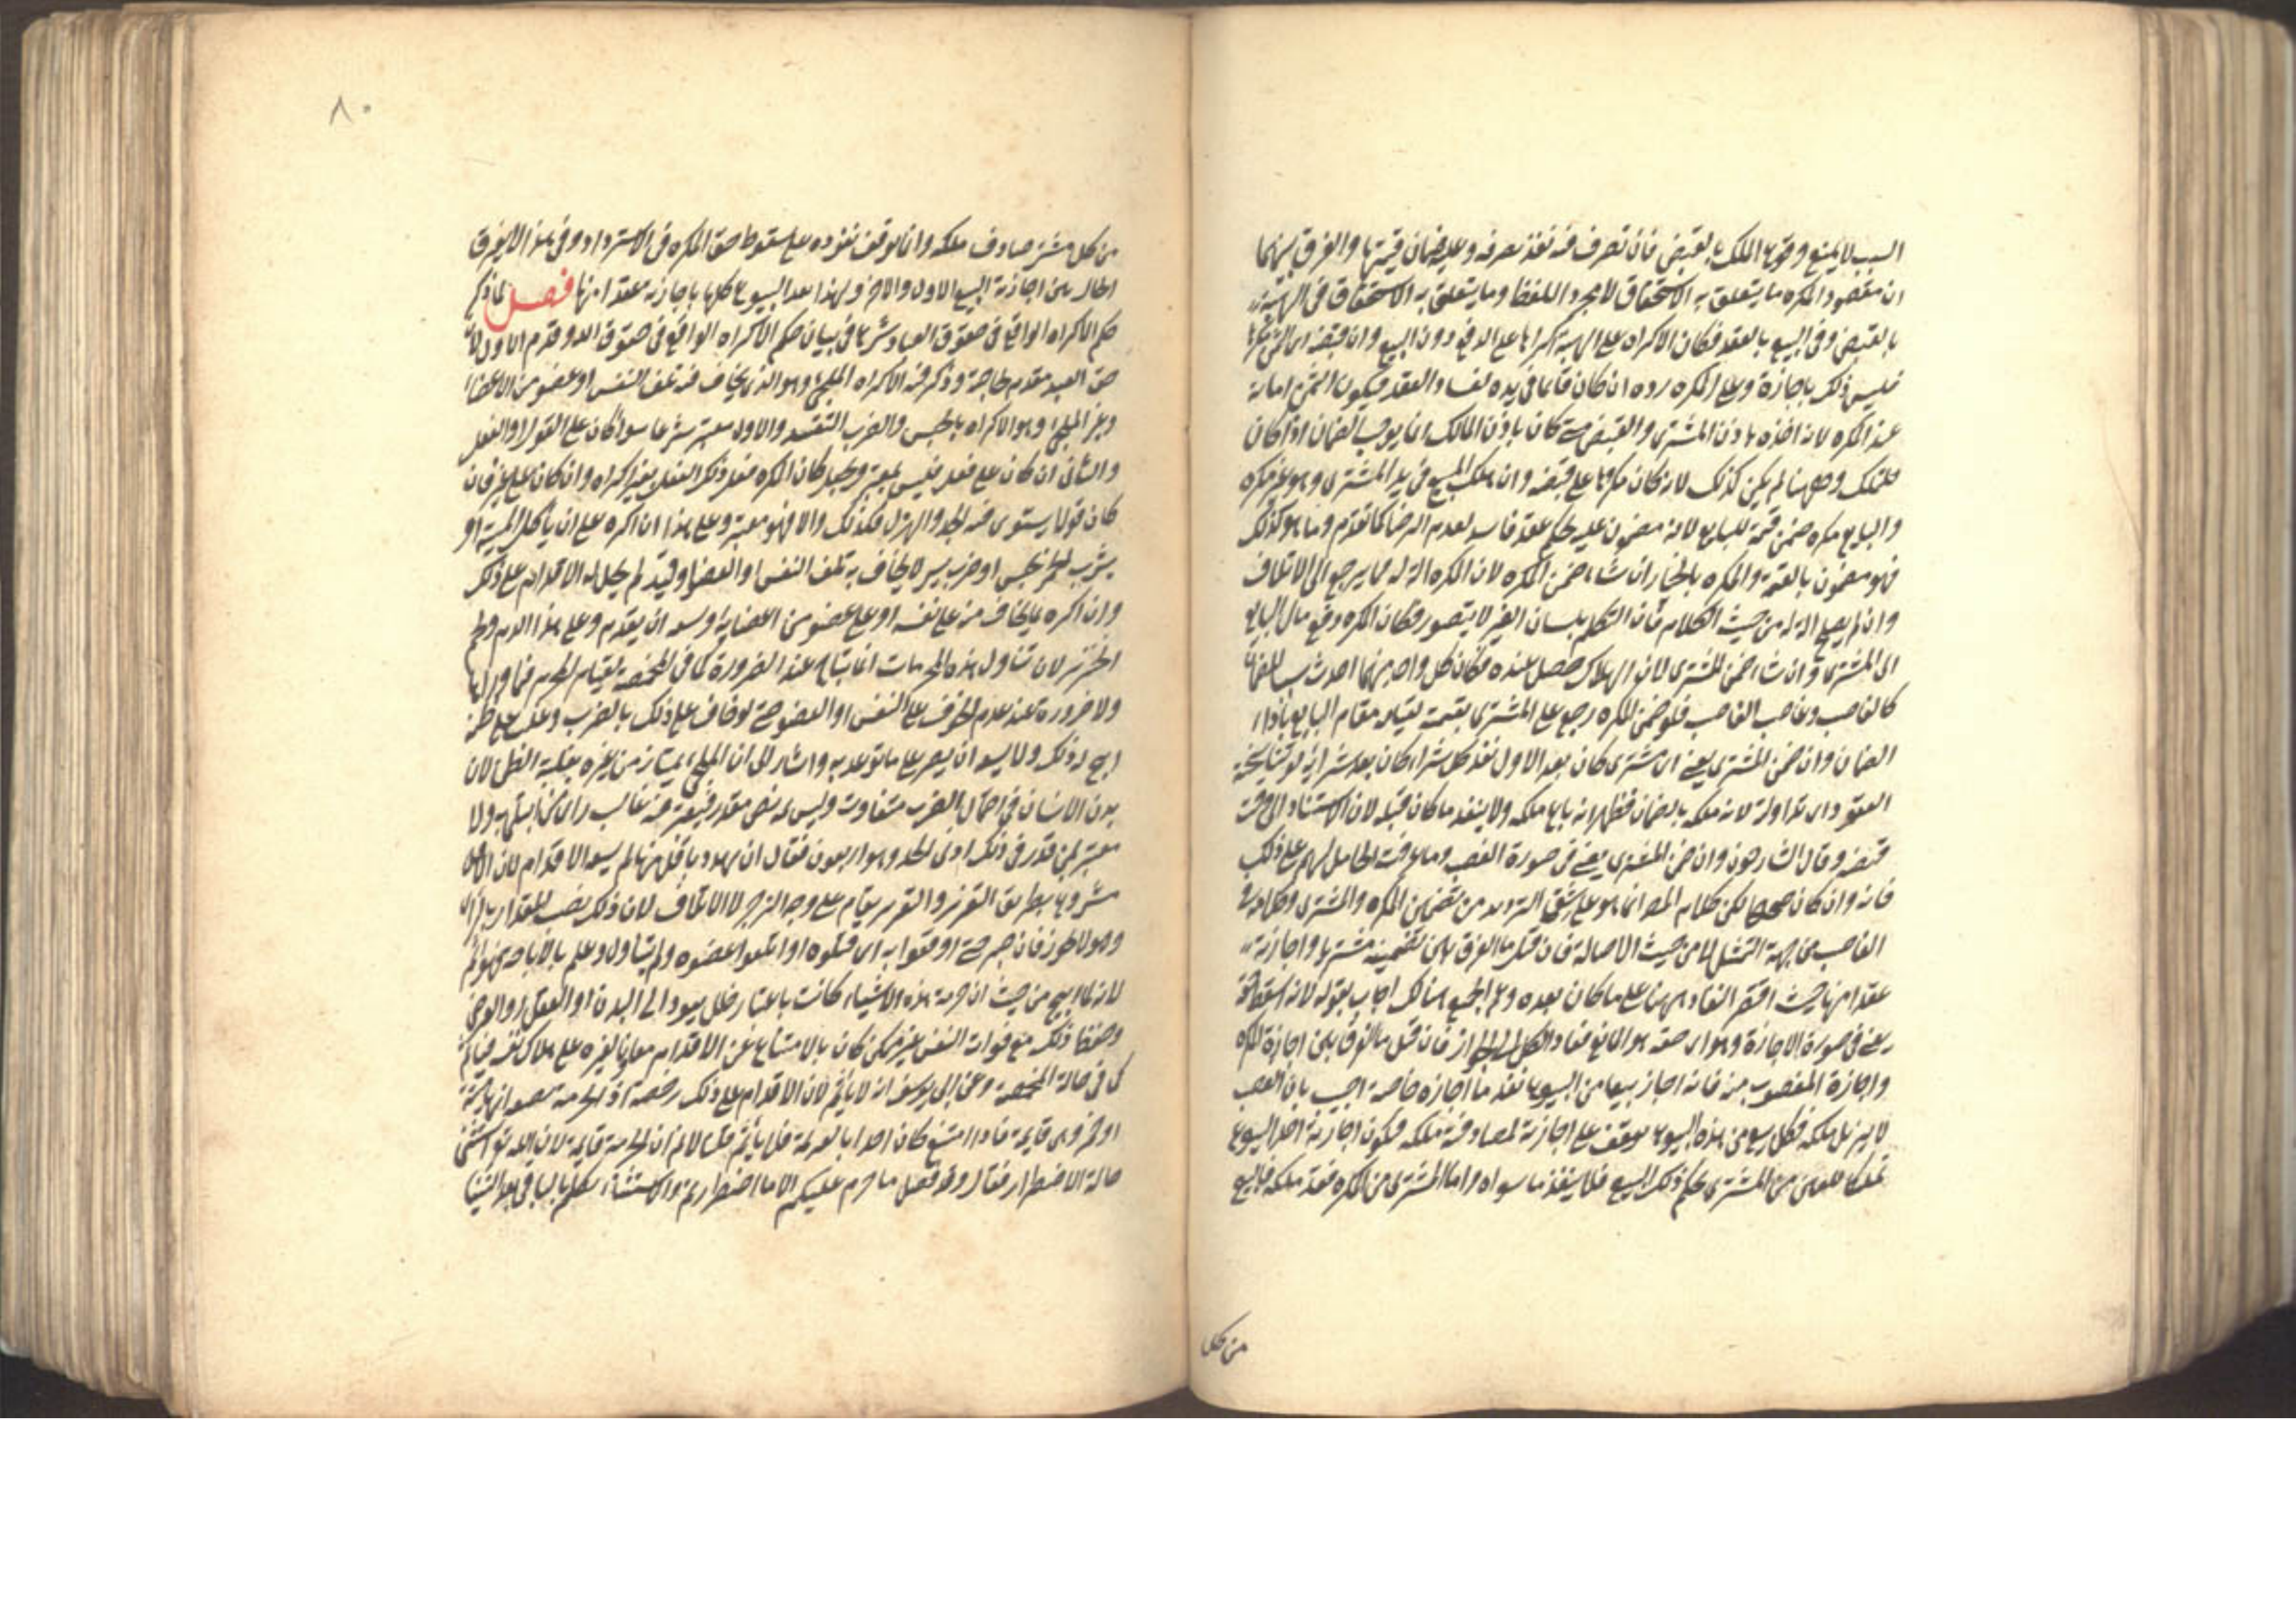 السبب لا يمنع وقوع الملك بالقبض فان تصرف فيه نفذ تصرفه وعليه ضمان قيمتها والفرق بينهما
ان مقصود المكره ما يتعلق به الاستحقاق لا مجرد اللفظ وما يتعلق به الاستحقاق في الهبة
بالقبض وفي البيع بالعقد فكان الاكراه على الهبة اكراها على الدفع دون البيع وان قبضه اى الثمن مكرها
فليس ذلك باجازة وعلى المكره رده ان كان قائما في يده لفساد العقد فيكون الثمن امانة
عند المكره لانه اخذه باذن المشترى والقبض متى كان باذن المالك انما يوجب الضمان اذا كان
للتملك وههنا لم يكن كذلك لانه كان مكرها على قبضه وان هلك المبيع في يد المشترى وهو غير مكره
والبايع مكره ضمن قيمته للبايع لانه مضمون عليه بحكم عقد فاسد لعدم الرضا كما تقدم وما هو كذلك
فهو مضمون بالقيمة والمكره بالخيار ان شاء ضمن المكره لان المكره الة له فيما يرجع الى الاتلاف
وان لم يصلح الة له من حيث الكلام فان التكلم بلسان الغير لا يتصور فكان المكره دفع مال البايع
الى المشترى وان شاء ضمن المشترى لان الهلاك حصل عنده فكان كل واحد منهما احدث سببا للضمان
كالغاصب وغاصب الغاصب فلو ضمن المكره رجع على المشترى بقيمته لقيامه مقام البايع باداء
الضمان وان ضمن المشترى يعنى اى مشترى كان بعد الاول نفذ كل شراء كان بعد شرائه لو تناسخته
العقود اى تداولته لانه ملكه بالضمان فظهر انه باع ملكه ولا ينفذ ما كان قبله لان الاستناد الى وقت
قبضه وقال الشارحون وان ضمن المشترى يعنى في صورة الغصب وما عرفت الحامل لهم على ذلك
فانه وان كان صحيحا لكن كلام المص انما هو على شقى الترديد من تضمين المكره والمشترى وكلامه في
الغاصب من جهة التمثيل لا من حيث الاصالة فان قيل ما الفرق بين تضمينه مشتريا واجازته
عقدا منها حيث اقتصر النفاذ ههنا على ما كان بعده وعم الجميع هنالك اجاب بقوله لانه اسقط حقه
يعنى في صورة الاجازة وهو اى حقه هو المانع فعاد الكل الى الجواز فان قيل ما الفرق بين اجازة المكره
واجازة المغصوب منه فانه اجاز بيعا من البيوع نفذ ما اجازه خاصة اجيب بان الغصب
لا يزيل ملكه فكل بيع من هذه البيوع توقف على اجازته لمصادفته ملكه فتكون اجازته احد البيوع
تمليكا للعين من المشترى بحكم ذلك البيع فلا ينفذ ما سواه واما المشترى من المكره فقد ملكه فالبيع
من كل
٨٠
من كل مشتر صادف ملكه وانما توقف نفوذه على سقوط حق المكره في الاسترداد وفي هذا لا يفرق
الحال بين اجازته البيع الاول والاخر ولهذا نفذ البيوع كلها باجازته عقدا منها فصل لما ذكر
حكم الاكراه الواقع في حقوق العباد شرع في بيان حكم الاكراه الواقع في حقوق الله وقدم الاول لان
حق العبد مقدم لحاجته وذكر فيه الاكراه الملجئ وهو الذى يخاف فيه تلف النفس او عضو من الاعضاء
وغير الملجئ وهو الاكراه بالحبس والضرب والقيد والاول معتبر شرعا سواء كان على القول او الفعل
والثانى ان كان على فعل فليس بمعتبر ويجعل كان المكره فعل ذلك الفعل بغير اكراه وان كان على غيره فان
كان قولا يستوى فيه الجد والهزل فكذلك والا فهو معتبر وعلى هذا ان اكره على ان يأكل الميتة او
يشرب الخمر بحبس او ضرب يسير لا يخاف به تلف النفس او العضو او قيد لم يحل له الاقدام على ذلك
وان اكره بما يخاف منه على نفسه او على عضو من اعضائه وسعه ان يقدم وعلى هذا الدم ولحم
الخنزير لان تناول هذه المحرمات انما يباح عند الضرورة كما في المخمصة لقيام المحرم فيما وراءها
ولا ضرورة عند عدم الخوف على النفس او العضو حتى لو خاف على ذلك بالضرب وغلب على ظنه
ابيح له ذلك ولا يسعه ان يصبر على ما توعد به واشار الى ان الملجئ يمتاز من غيره بغلبة الظن لان
بدن الانسان في احتمال الضرب متفاوت وليس ثمه نص مقدر فيعتبر فيه غالب راى من ابتلى به ولا
معتبر بمن قدر في ذلك ادنى الحد وهو اربعون فقال ان هدد باقل منها لم يسعه الاقدام لان الاقل
مشروع بطريق التعزير والتعزير يقام على وجه الزجر لا الاتلاف لان ذلك نصب المقدار بالراى
وهو لا يجوز فان صبر حتى اوقعوا به اى قتلوه او اتلفوا عضوه ولم يتناول وعلم بالاباحة فهو اثم
لانه لما ابيح من حيث ان حرمة هذه الاشياء كانت باعتبار خلل يعود الى البدن او العقل او العرض
وحفظ ذلك مع فوات النفس غير ممكن كان بالامتناع عن الاقدام معاونا لغيره على هلاك نفسه فيأثم
كما في حالة المخمصة وعن ابى يوسف انه لا يأثم لان الاقدام على ذلك رخصة اذ الحرمة بصفة انها ميتة
او خمر وهى قائمة فاذا امتنع كان اخذا بالعزيمة فلا يأثم قلنا لا نم ان الحرمة قائمة لان الله تع استثنى
حالة الاضطرار فقال وقد فصل ما حرم عليكم الا ما اضطررتم والاستثناء تكلم بالباقى بعد الثنيا